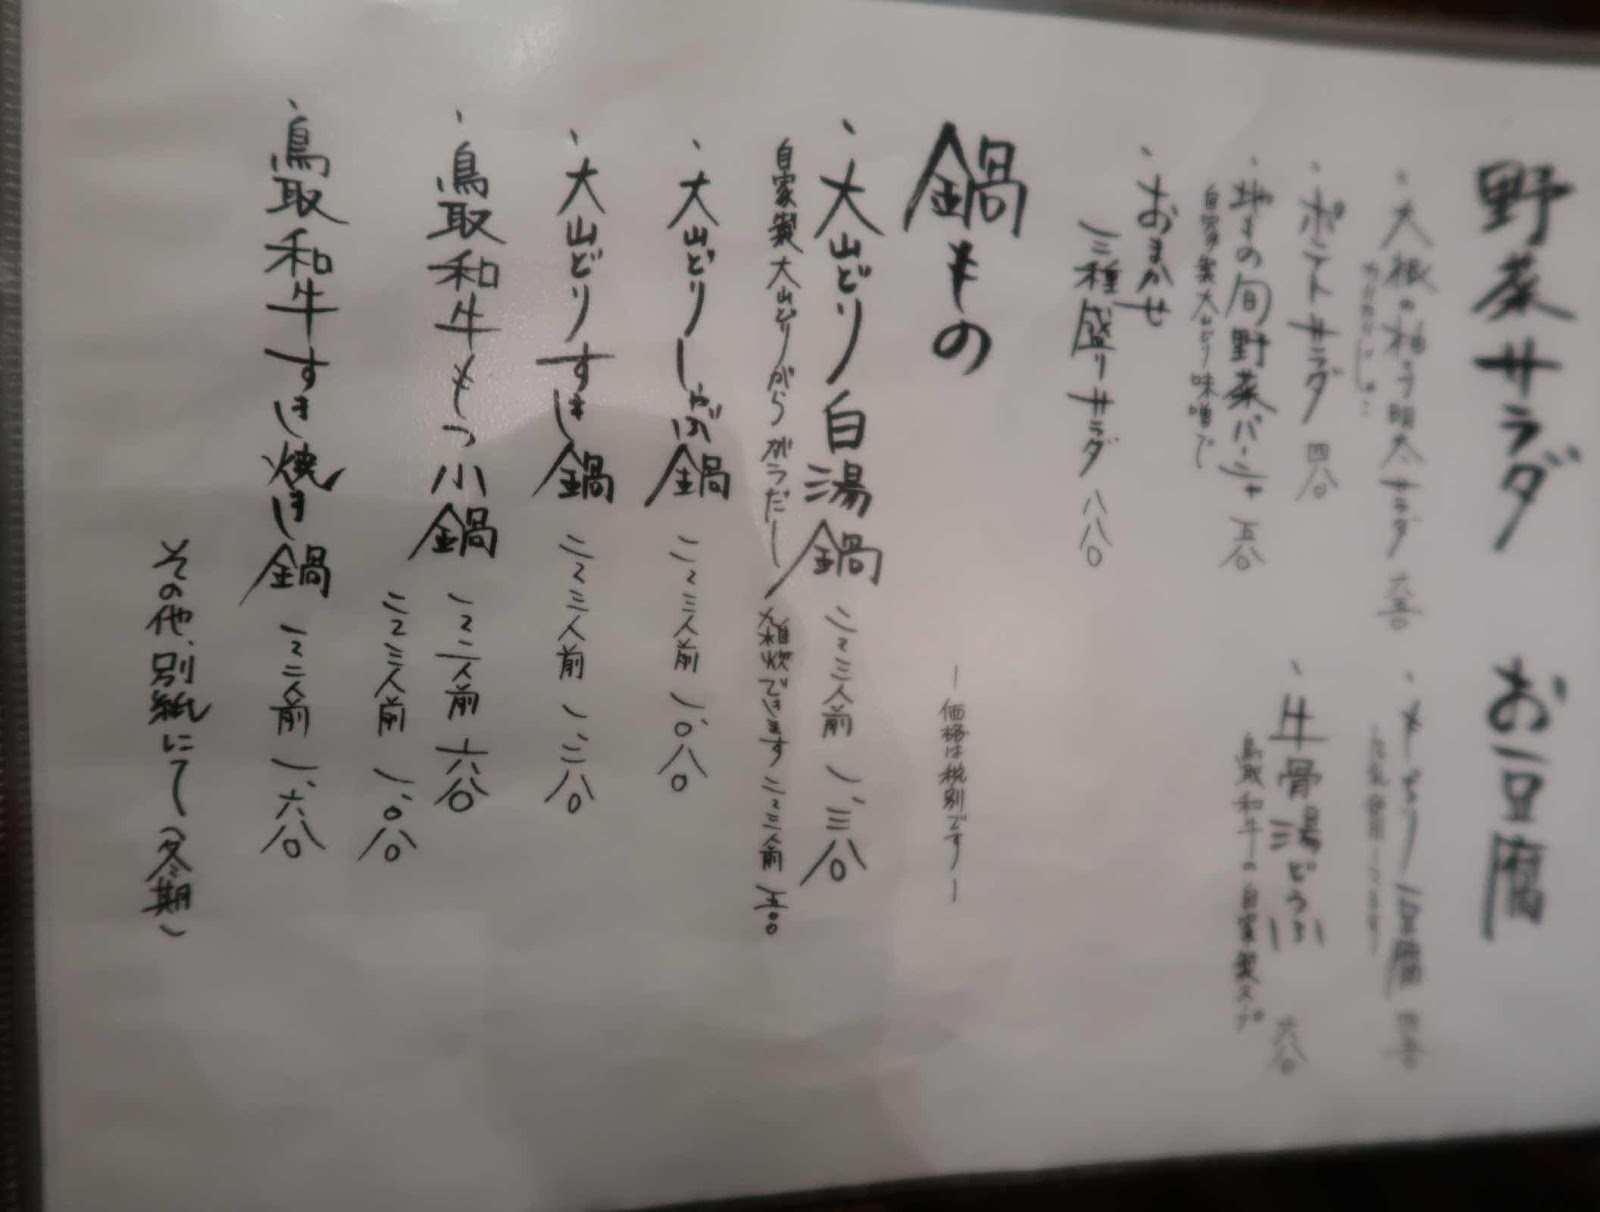 野菜サラダ
・大根の梅う明太サラダ 六五〇
・ポテトサラダ 四八〇
・地もの旬野菜バーニャ 五八〇
自家製大山どり味噌で
・おまかせ
三種盛りサラダ 八八〇
お豆腐
豆腐 四五〇
・牛骨湯どうふ 六八〇
鳥取和牛の自家製スープ
鍋もの
―価格は税別です―
・大山どり白湯鍋 二〜三人前 一、三八〇
自家製大山どりがら がらだし/雑炊できます 二〜三人前 五〇〇
・大山どりしゃぶ鍋 二〜三人前 一、〇八〇
・大山どりすき鍋 二〜三人前 一、二八〇
・鳥取和牛もつ小鍋 一〜二人前 六八〇
二〜三人前 一、〇八〇
・鳥取和牛すき焼き鍋 一〜二人前 一、六八〇
その他、別紙にて(冬期)